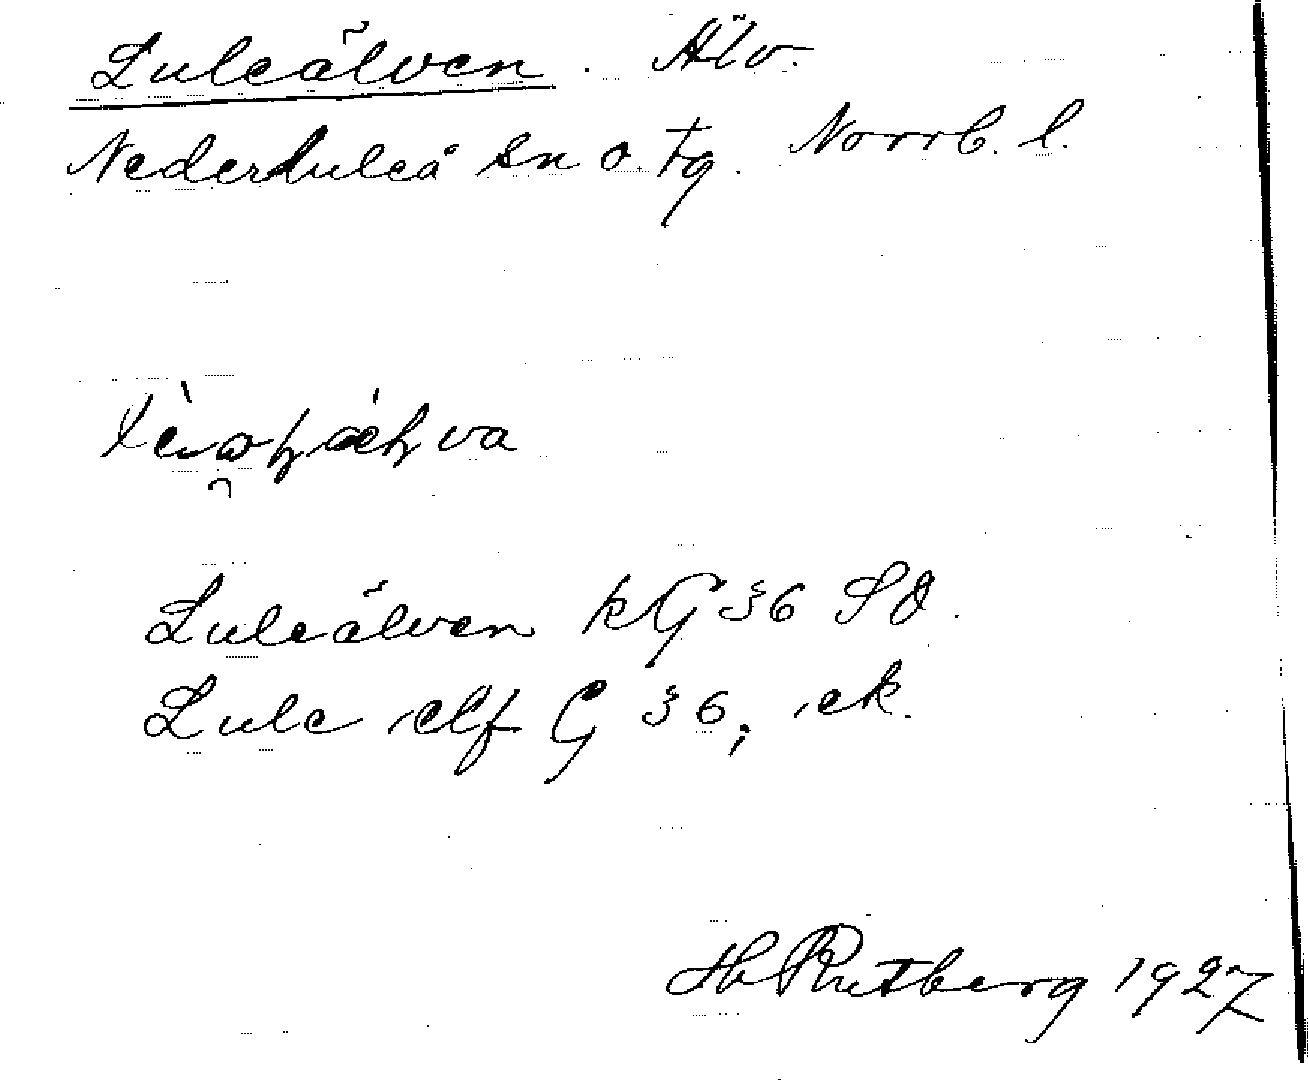 Luleälven. Älv.
Nederluleå sn o. tg. Norrb. l.
Luleälven kG 36 SO.
Lule elf G 36, ek.
H Rutberg 1927